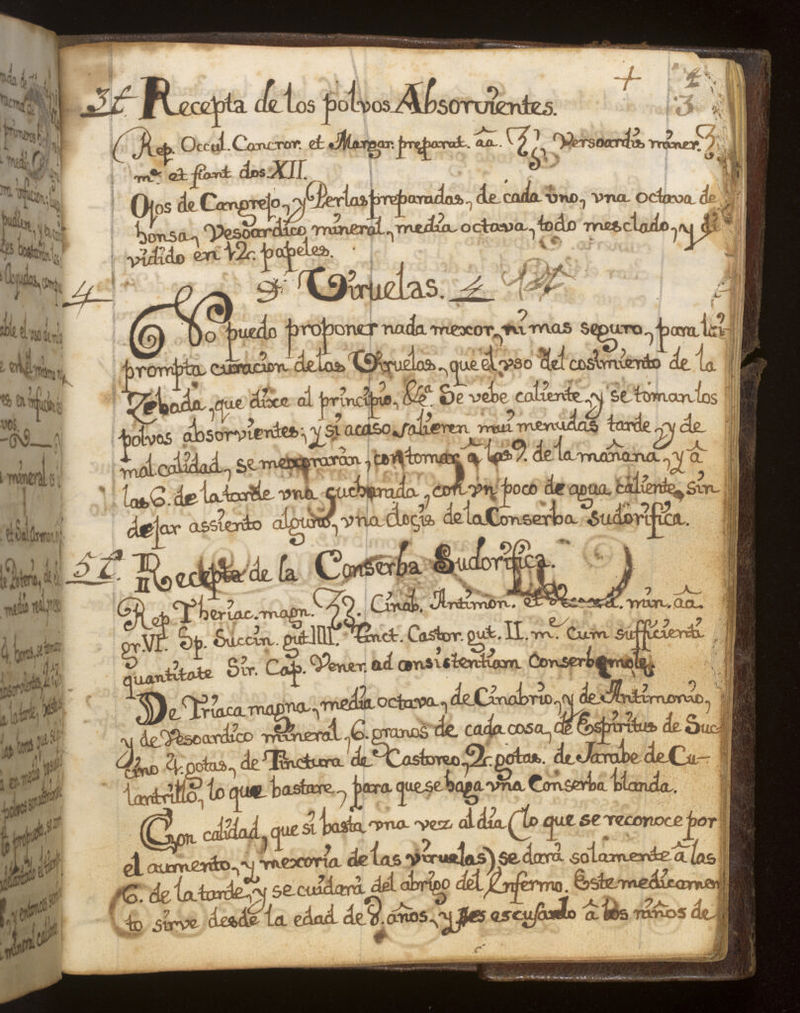 3ƒ Recepta de los polvos Absorvientes.
Rep. Occul. Cancror. et Margar. preparat. āā. Vesoardis miner.
mē. et fiant dos. XII.
Ojos de Cangrejo, y Perlas preparadas, de cada vno, vna octava de
honsa, Vesoardico mineral, media octava, todo mesclado, y di
vidido en 12. papeles.
4 Viruelas.
No puedo proponer nada mexor, ni mas seguro, para la
prompta curacion de las Viruelas, que el vso del cosimiento de la
Zebada, que dixe al principio, &ca. Se vebe caliente, y se toman los
polvos absorvientes; y si acaso salieren mui menudas tarde, y de
mal calidad, se mexoraràn, con tomar â las 9. de la mañana, y â
las 6. de la tarde vna cucharada, con vn poco de agua caliente, sin
dejar assiento alguno, vna docis de la Conserba Sudorifica.
5ƒ. Recepta de la Conserba Sudorifica.
Rep. Theriac. magn. Cinab. Antimon. et min. āā.
gr. VI. Sp. Succin. gut. IIII. Tinct. Castor. gut. II. m.e Cum sufficienti
quantitate Sir. Cap. Vener. ad consistentiam Conserbe molis.
De Triaca magna, media octava, de Cinabrio, y de Antimonio,
y de Vesoardico mineral, 6. granos de cada cosa, de Espiritus de Suc
cino 4. gotas, de Tinctura de Castoreo, 2. gotas. de Jarabe de Cu-
lantrillo, lo que bastare, para que se haga vña Conserba blanda.
Con calidad, que si basta vna vez al dia (lo que se reconoce por
el aumento, y mexoria de las viruelas) se darà solamente â las
6. de la tarde, y se cuidarà del abrigo del Enfermo. Este medicamen
to sirve desde la edad de 8. años, y es escusado â los niños de